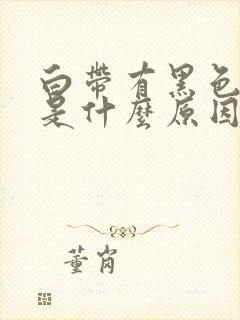 白帶有黑色
是什麼原因
董岗